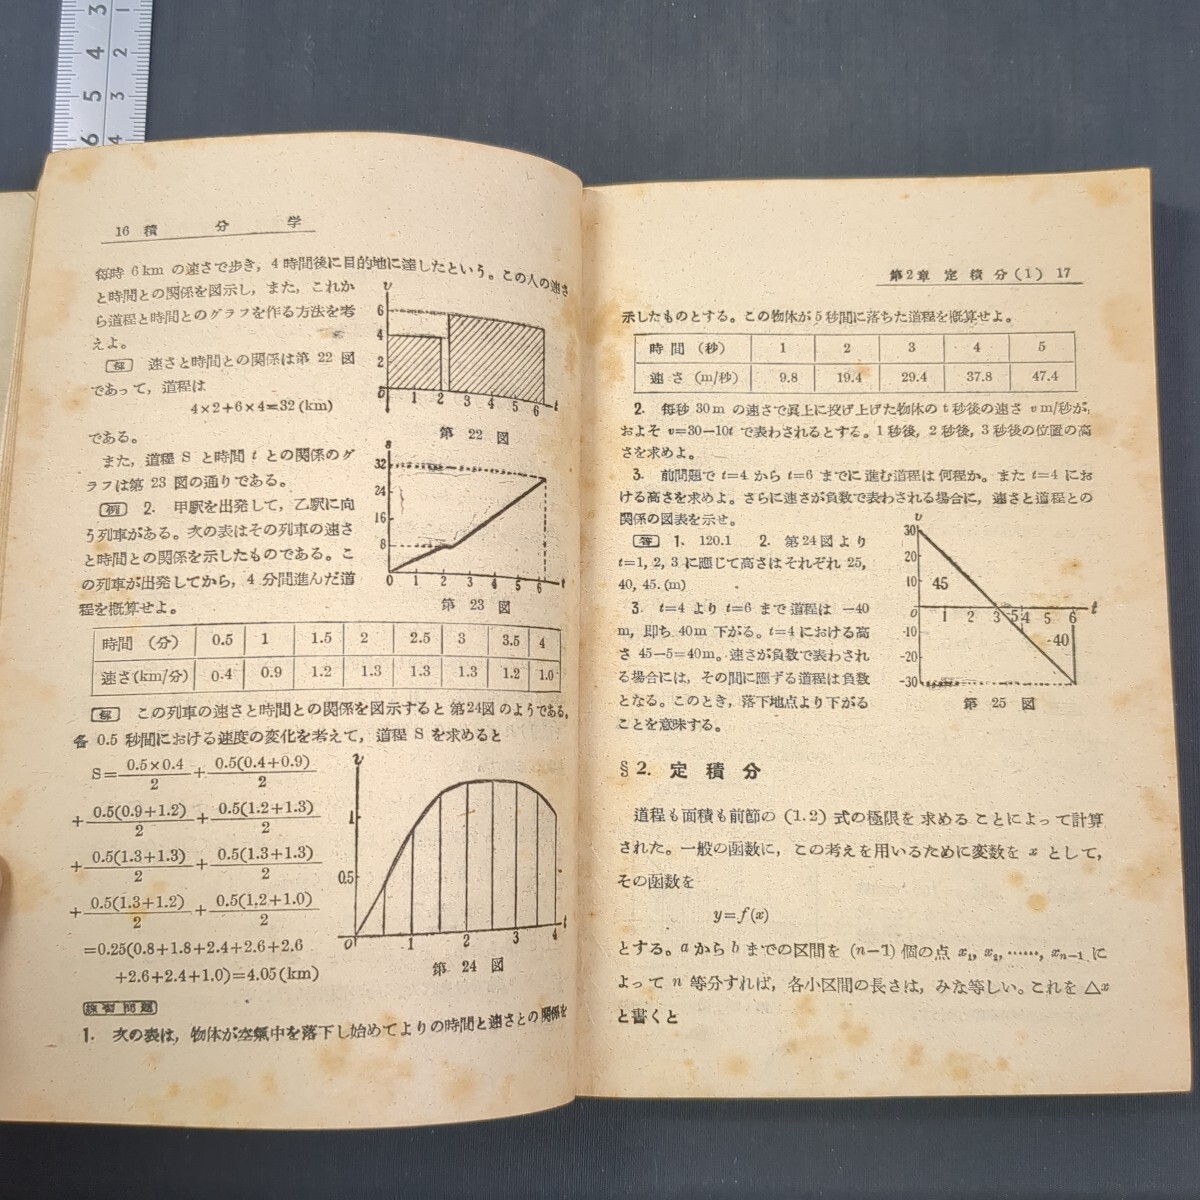 16 積分学
每時 6km の速さで歩き，4時間後に目的地に達したという。この人の速さ
と時間との関係を図示し，また，これか
ら道程と時間とのグラフを作る方法を考
えよ。
速さと時間との関係は第 22 図
であって，道程は
4×2+6×4=32(km)
である。
また，道程 S と時間 t との関係のグ
ラフは第 23 図の通りである。
例 2. 甲駅を出発して，乙駅に向
う列車がある。次の表はその列車の速さ
と時間との関係を示したものである。こ
の列車が出発してから，4 分間進んだ道
程を概算せよ。
v
6
4
2
0 1 2 3 4 5 6 t
第 22 図
s
32
24
16
8
0 1 2 3 4 5 6 t
第 23 図
時間 (分) 0.5 1 1.5 2 2.5 3 3.5 4
速さ(km/分) 0.4 0.9 1.2 1.3 1.3 1.3 1.2 1.0
この列車の速さと時間との関係を図示すると第24図のようである。
各 0.5 秒間における速度の変化を考えて，道程 S を求めると
S=0.5×0.4/2+0.5(0.4+0.9)/2
+0.5(0.9+1.2)/2+0.5(1.2+1.3)/2
+0.5(1.3+1.3)/2+0.5(1.3+1.3)/2
+0.5(1.3+1.2)/2+0.5(1.2+1.0)/2
=0.25(0.8+1.8+2.4+2.6+2.6
+2.6+2.4+1.0)=4.05(km)
v
1
0.5
0 1 2 3 4 t
第 24 図
練習問題
1. 次の表は，物体が空気中を落下し始めてよりの時間と速さとの関係を
第2章 定積分(1) 17
示したものとする。この物体が5秒間に落ちた道程を概算せよ。
時間 (秒) 1 2 3 4 5
速さ (m/秒) 9.8 19.4 29.4 37.8 47.4
2. 每秒 30m の速さで眞上に投げ上げた物体の t 秒後の速さ v m/秒が，
およそ v=30−10t で表わされるとする。1秒後，2秒後，3秒後の位置の高
さを求めよ。
3. 前問題で t=4 から t=6 までに進む道程は何程か。また t=4 にお
ける高さを求めよ。さらに速さが負数で表わされる場合に，速さと道程との
関係の図表を示せ。
答 1. 120.1 2. 第24図より
t=1, 2, 3 に應じて高さはそれぞれ 25,
40, 45.(m)
3. t=4 より t=6 まで道程は −40
m, 即ち 40m 下がる。t=4における高
さ 45−5=40m。速さが負数で表わされ
る場合には，その間に應ずる道程は負数
となる。このとき，落下地点より下がる
ことを意味する。
v
30
20
10
0
-10
-20
-30
45
1 2 3 4 5 6 t
-5
-40
第 25 図
§2. 定積分
道程も面積も前節の (1.2) 式の極限を求めることによって計算
された。一般の函数に，この考えを用いるために変数を x として，
その函数を
y=f(x)
とする。a から b までの区間を (n−1) 個の点 x₁, x₂, ……, xₙ₋₁ に
よって n 等分すれば，各小区間の長さは，みな等しい。これを △x
と書くと
3
4
5
6
1
2
3
4